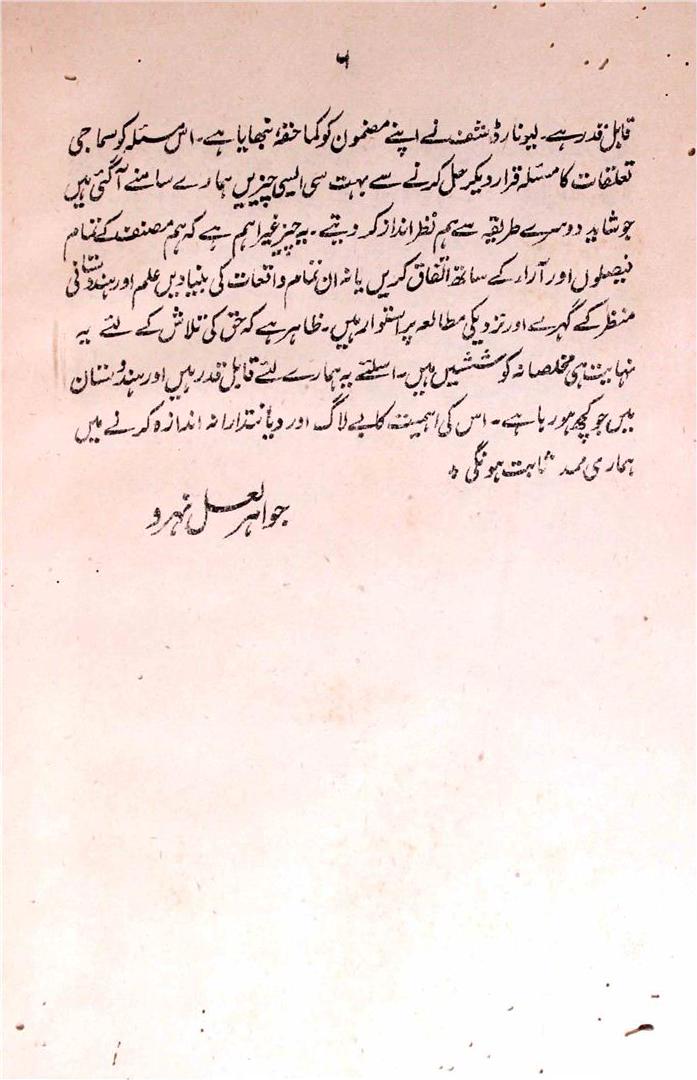 ۶
قابل قدر ہے۔ لیونارڈ شف نے اپنے مضمون کو کما حقہٗ نبھایا ہے۔ اس مسئلہ کو سماجی
تعلقات کا مسئلہ قرار دیکر حل کرنے سے بہت سی ایسی چیزیں ہمارے سامنے آگئی ہیں
جو شاید دوسرے طریقہ سے ہم نظر انداز کر دیتے۔ یہ چیز غیر اہم ہے کہ ہم مصنف کے تمام
فیصلوں اور آراء کے ساتھ اتفاق کریں یا نہ ان تمام واقعات کی بنیادیں علم اور ہندوستانی
منظر کے گہرے اور نزدیکی مطالعہ پر استوار ہیں۔ ظاہر ہے کہ حق کی تلاش کے لئے یہ
نہایت ہی مخلصانہ کوششیں ہیں۔ اسلئے یہ ہمارے لئے قابل قدر ہیں اور ہندوستان
میں جو کچھ ہو رہا ہے۔ اس کی اہمیت کا بے لاگ اور دیانتدارانہ اندازہ کرنے میں
ہماری ممد ثابت ہونگی
جواہر لعل نہرو